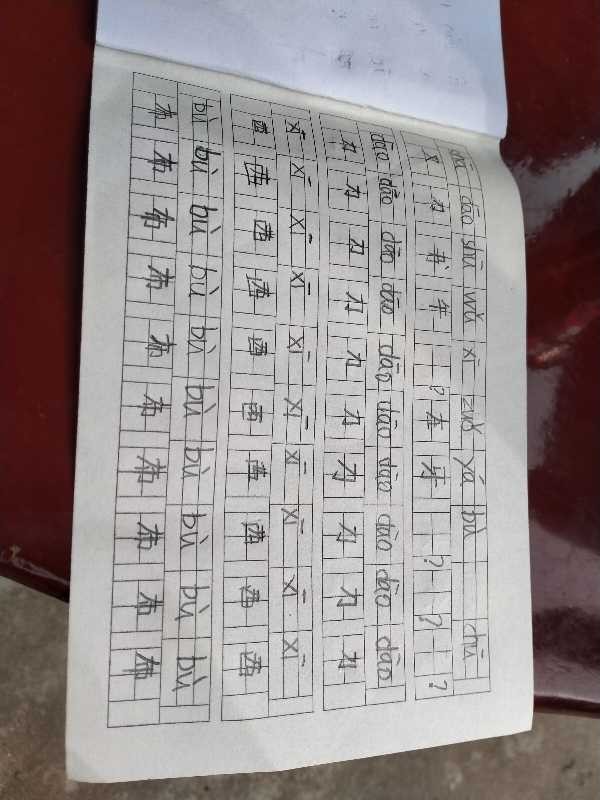 dāo shū wǔ xī zuǒ yá bù chū
义 刀 书 午 ? 左 牙 ? ? ?
dāo dāo dāo dāo dāo dāo dāo dāo dāo dāo
刀 刀 刀 刀 刀 刀 刀 刀 刀 刀
xī xī xī xī xī xī xī xī xī xī
西 西 西 西 西 西 西 西 西 西
bù bù bù bù bù bù bù bù bù bù
布 布 布 布 布 布 布 布 布 布